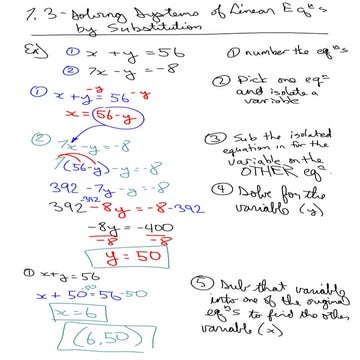 7.3 - Solving Systems of Linear Eqⁿs
by Substitution
Ex) ① x + y = 56
② 7x - y = -8
① number the eqⁿs
② Pick one eqⁿ
and isolate a
variable
① x + y = 56 -y
-y
x = 56-y
② 7x - y = -8
7(56-y) - y = -8
392 - 7y - y = -8
392 - 8y = -8 -392
-392
-8y = -400
-8 -8
y = 50
③ Sub the isolated
equation in for the
variable on the
OTHER eqⁿ
④ Solve for the
variable (y)
① x + y = 56
x + 50 = 56 -50
-50
x = 6
(6,50)
⑤ Sub that variable
into one of the original
eqⁿs to find the other
variable (x)